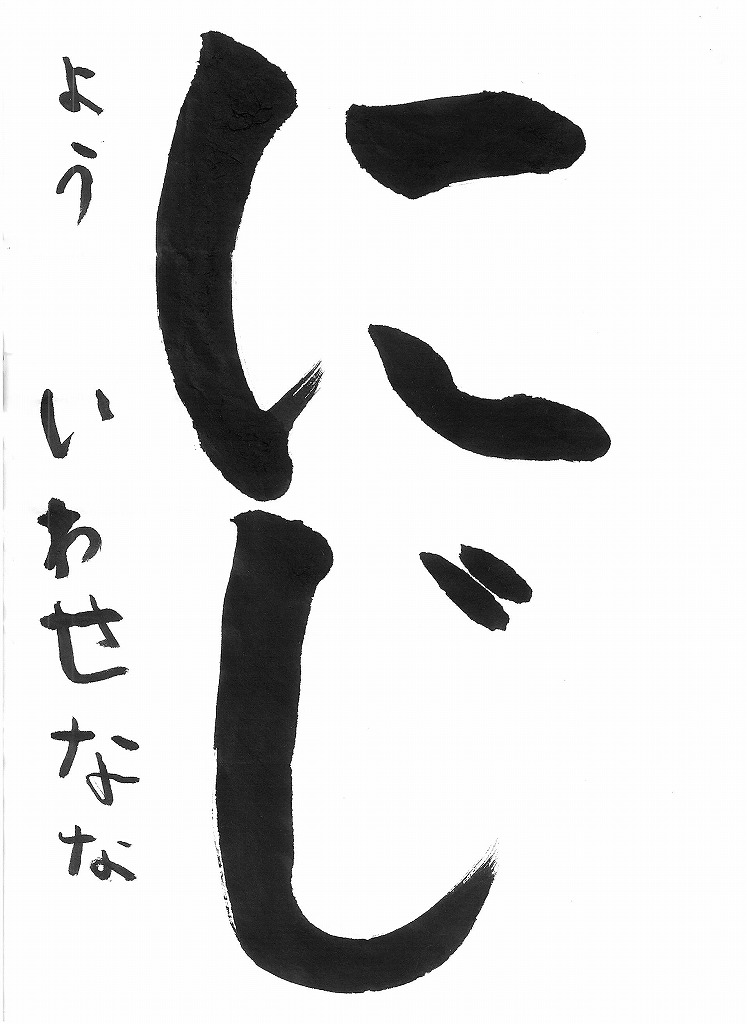 にじ
よう いわせなな